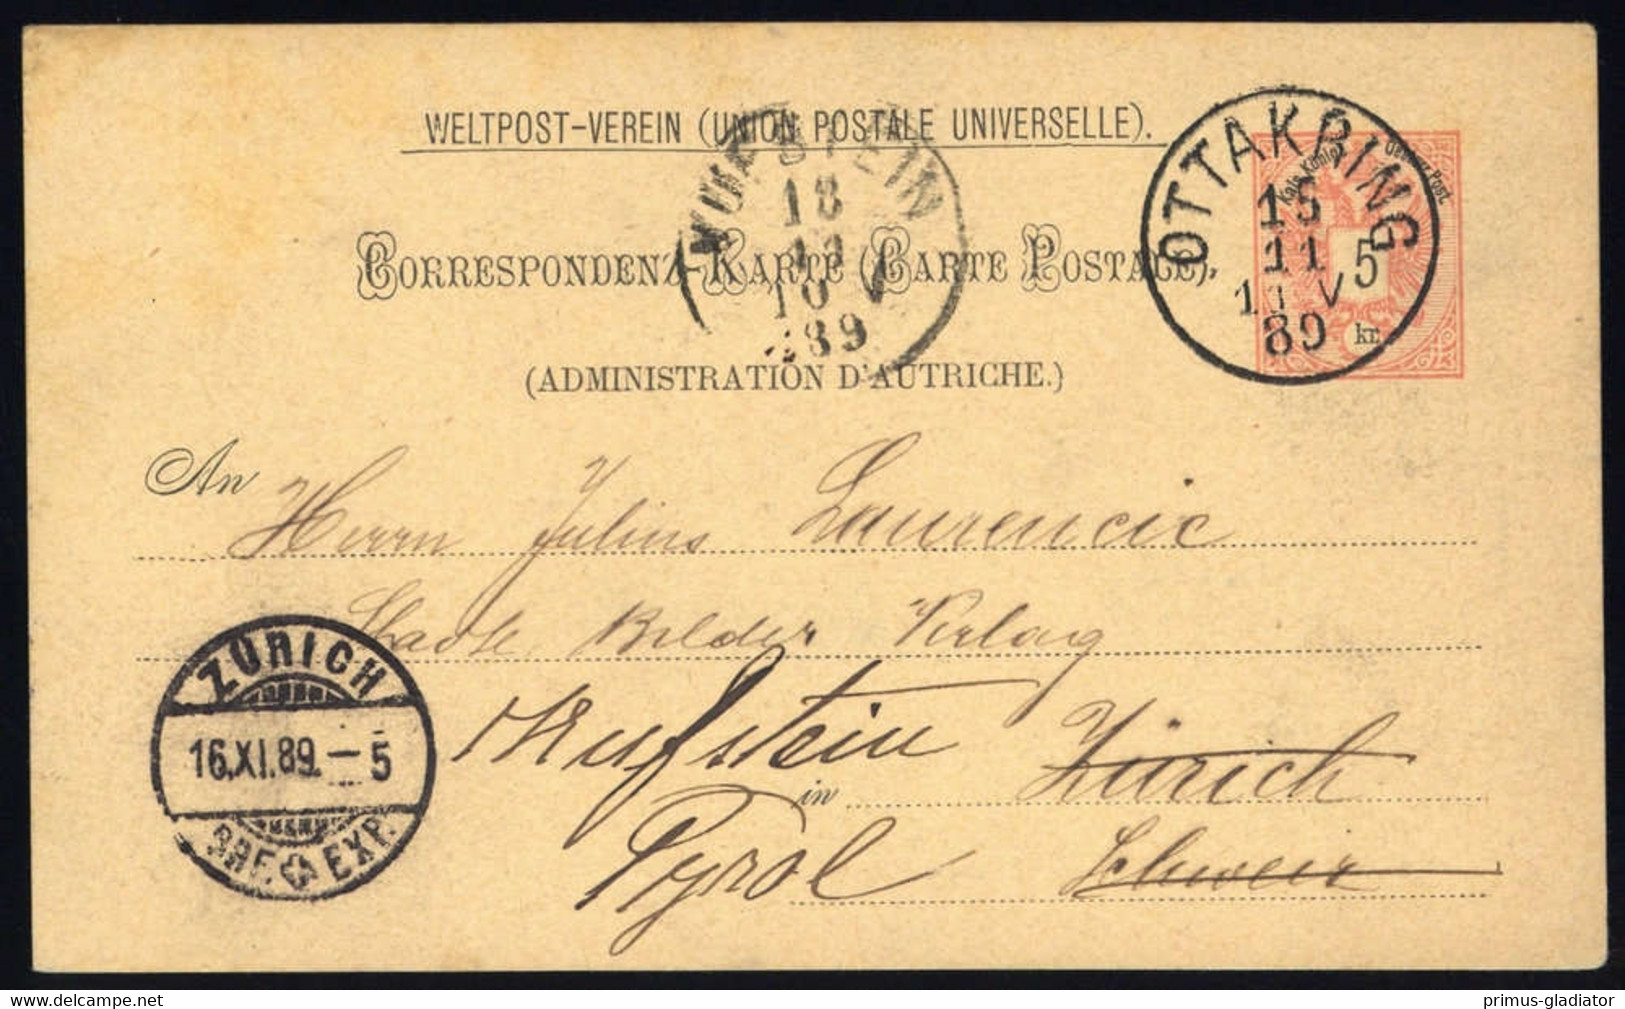 WELTPOST-VEREIN (UNION POSTALE UNIVERSELLE).
OTTAKRING
15
11
11 V
89
Kais. Königl. Oesterr. Post.
5
kr.
KUFSTEIN
18
11
10 V
89
CORRESPONDENZ-KARTE (CARTE POSTALE).
(ADMINISTRATION D'AUTRICHE.)
An Herrn Julius Laurencic
Städte Bilder Verlag
ZÜRICH
16.XI.89.–5
BRF. EXP.
Kufstein in Zürich
Tyrol Schweiz
www.delcampe.net
primus-gladiator